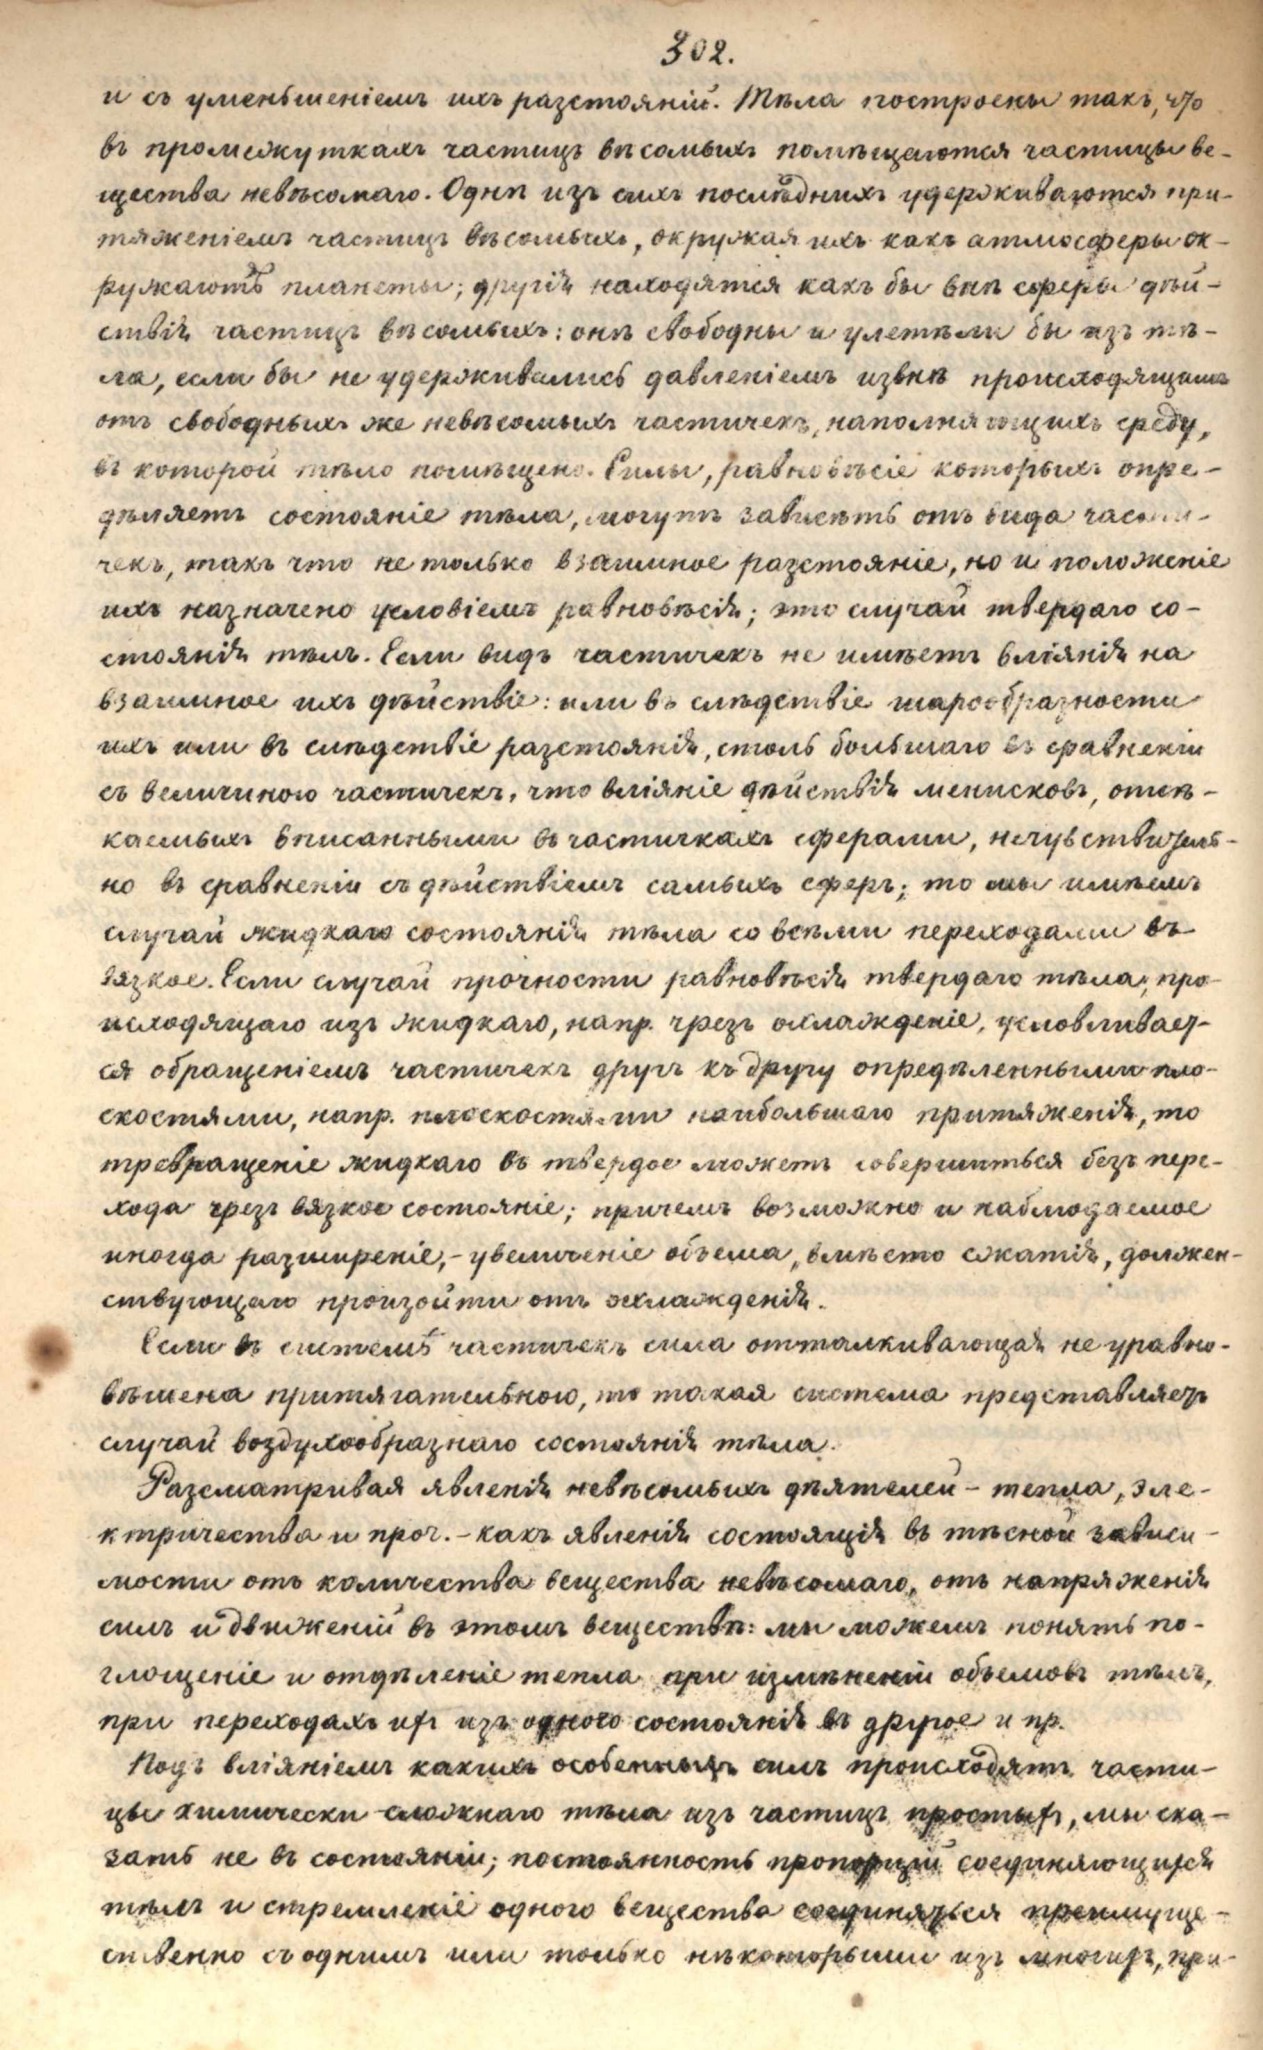 302.
и съ уменьшеніемъ ихъ разстояній. Тѣла построены такъ, что
въ промежуткахъ частицъ вѣсомыхъ помѣщаются частицы ве-
щества невѣсомаго. Однѣ изъ сихъ послѣднихъ удерживаются при-
тяженіемъ частицъ вѣсомыхъ, окружая ихъ какъ атмосферы ок-
ружаютъ планеты; другія находятся какъ бы внѣ сферы дѣй-
ствія частицъ вѣсомыхъ: онѣ свободны и улетѣли бы изъ тѣ-
ла, если бы не удерживались давленіемъ извнѣ происходящимъ
отъ свободныхъ же невѣсомыхъ частичекъ, наполняющихъ среду,
въ которой тѣло помѣщено. Силы, равновѣсіе которыхъ опре-
дѣляетъ состояніе тѣла, могутъ зависѣть отъ вида части-
чекъ, такъ что не только взаимное разстояніе, но и положеніе
ихъ назначено условіемъ равновѣсія; это случай твердаго со-
стоянія тѣлъ. Если видъ частичекъ не имѣетъ вліянія на
взаимное ихъ дѣйствіе: или въ слѣдствіе шарообразности
ихъ или въ слѣдствіе разстоянія, столь большаго въ сравненіи
съ величиною частичекъ, что вліяніе дѣйствія менисковъ, отсѣ-
каемыхъ вписанными въ частичкахъ сферами, нечувствитель-
но въ сравненіи съ дѣйствіемъ самыхъ сферъ; то мы имѣемъ
случай жидкаго состоянія тѣла со всѣми переходами въ
вязкое. Если случай прочности равновѣсія твердаго тѣла, про-
исходящаго изъ жидкаго, напр. чрезъ охлажденіе, условливает-
ся обращеніемъ частичекъ другъ къ другу опредѣленными пло-
скостями, напр. плоскостями наибольшаго притяженія, то
превращеніе жидкаго въ твердое можетъ совершиться безъ пере-
хода чрезъ вязкое состояніе; причемъ возможно и наблюдаемое
иногда разширеніе, - увеличеніе объема, вмѣсто сжатія, должен-
ствующаго произойти отъ охлажденія.
Если въ системѣ частичекъ сила отталкивающая не уравно-
вѣшена притягательною, то такая система представляетъ
случай воздухообразнаго состоянія тѣла.
Разсматривая явленія невѣсомыхъ дѣятелей - тепла, эле-
ктричества и проч. - какъ явленія состоящія въ тѣсной зависи-
мости отъ количества вещества невѣсомаго, отъ напряженія
силъ и движеній въ этомъ веществѣ: мы можемъ понять по-
глощеніе и отдѣленіе тепла при измѣненіи объемовъ тѣлъ,
при переходахъ ихъ изъ одного состоянія въ другое и пр.
Подъ вліяніемъ какихъ особенныхъ силъ происходятъ части-
цы химически сложнаго тѣла изъ частицъ простыхъ, мы ска-
зать не въ состояніи; постоянность пропорцій соединяющихся
тѣлъ и стремленіе одного вещества соединяться преимуще-
ственно съ однимъ или только нѣкоторыми изъ многихъ, при-